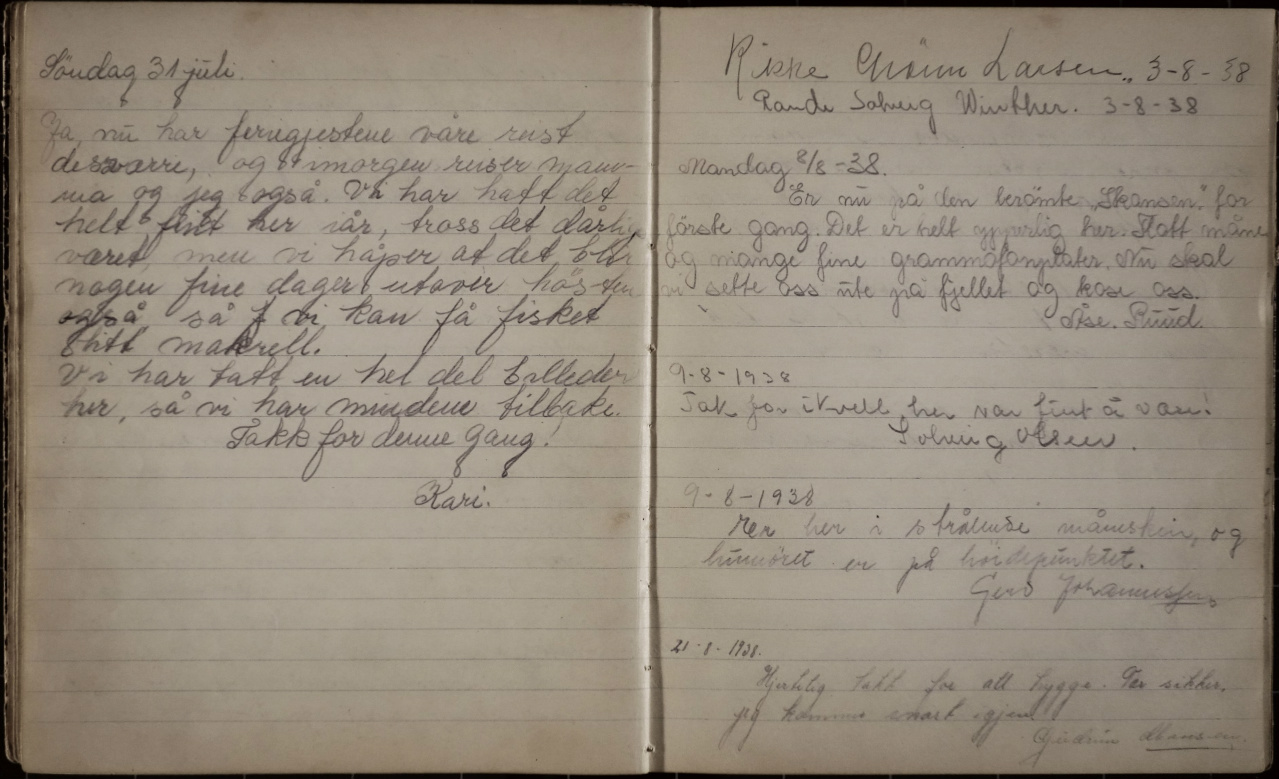 Söndag 31 juli.
Ja, nu har feriegjestene våre reist
desværre, og imorgen reiser mam-
ma og jeg også. Vi har hatt det
helt fint her iår, tross det dårlige
været, men vi håper at det blir
nogen fine dager utover hösten
også så vi kan få fisket
litt makrell.
Vi har tatt en hel del billeder
her, så vi har mindene tilbake.
Takk for denne gang!
Kari.
Rikke Grönn Larsen,, 3-8-38
Solveig Winther. 3-8-38
Mandag 8/8 -38.
Er nu på den berömte „Skansen" for
förste gang. Det er helt ypperlig her. Flott måne
og mange fine grammofonplater. Nu skal
vi sette oss ute på fjellet og kose oss.
Åse. Ruud.
9-8-1938
Tak for ikvell, her var fint å være!
Solveig Olsen.
9-8-1938
her i strålense måneskin, og
humöret er på höidepunktet.
Gerd Johannessen
21-8-1938.
Hjertelig takk for all hygge. Ter sikker,
jeg kommer snart igjen!
Gudrun Hansen.